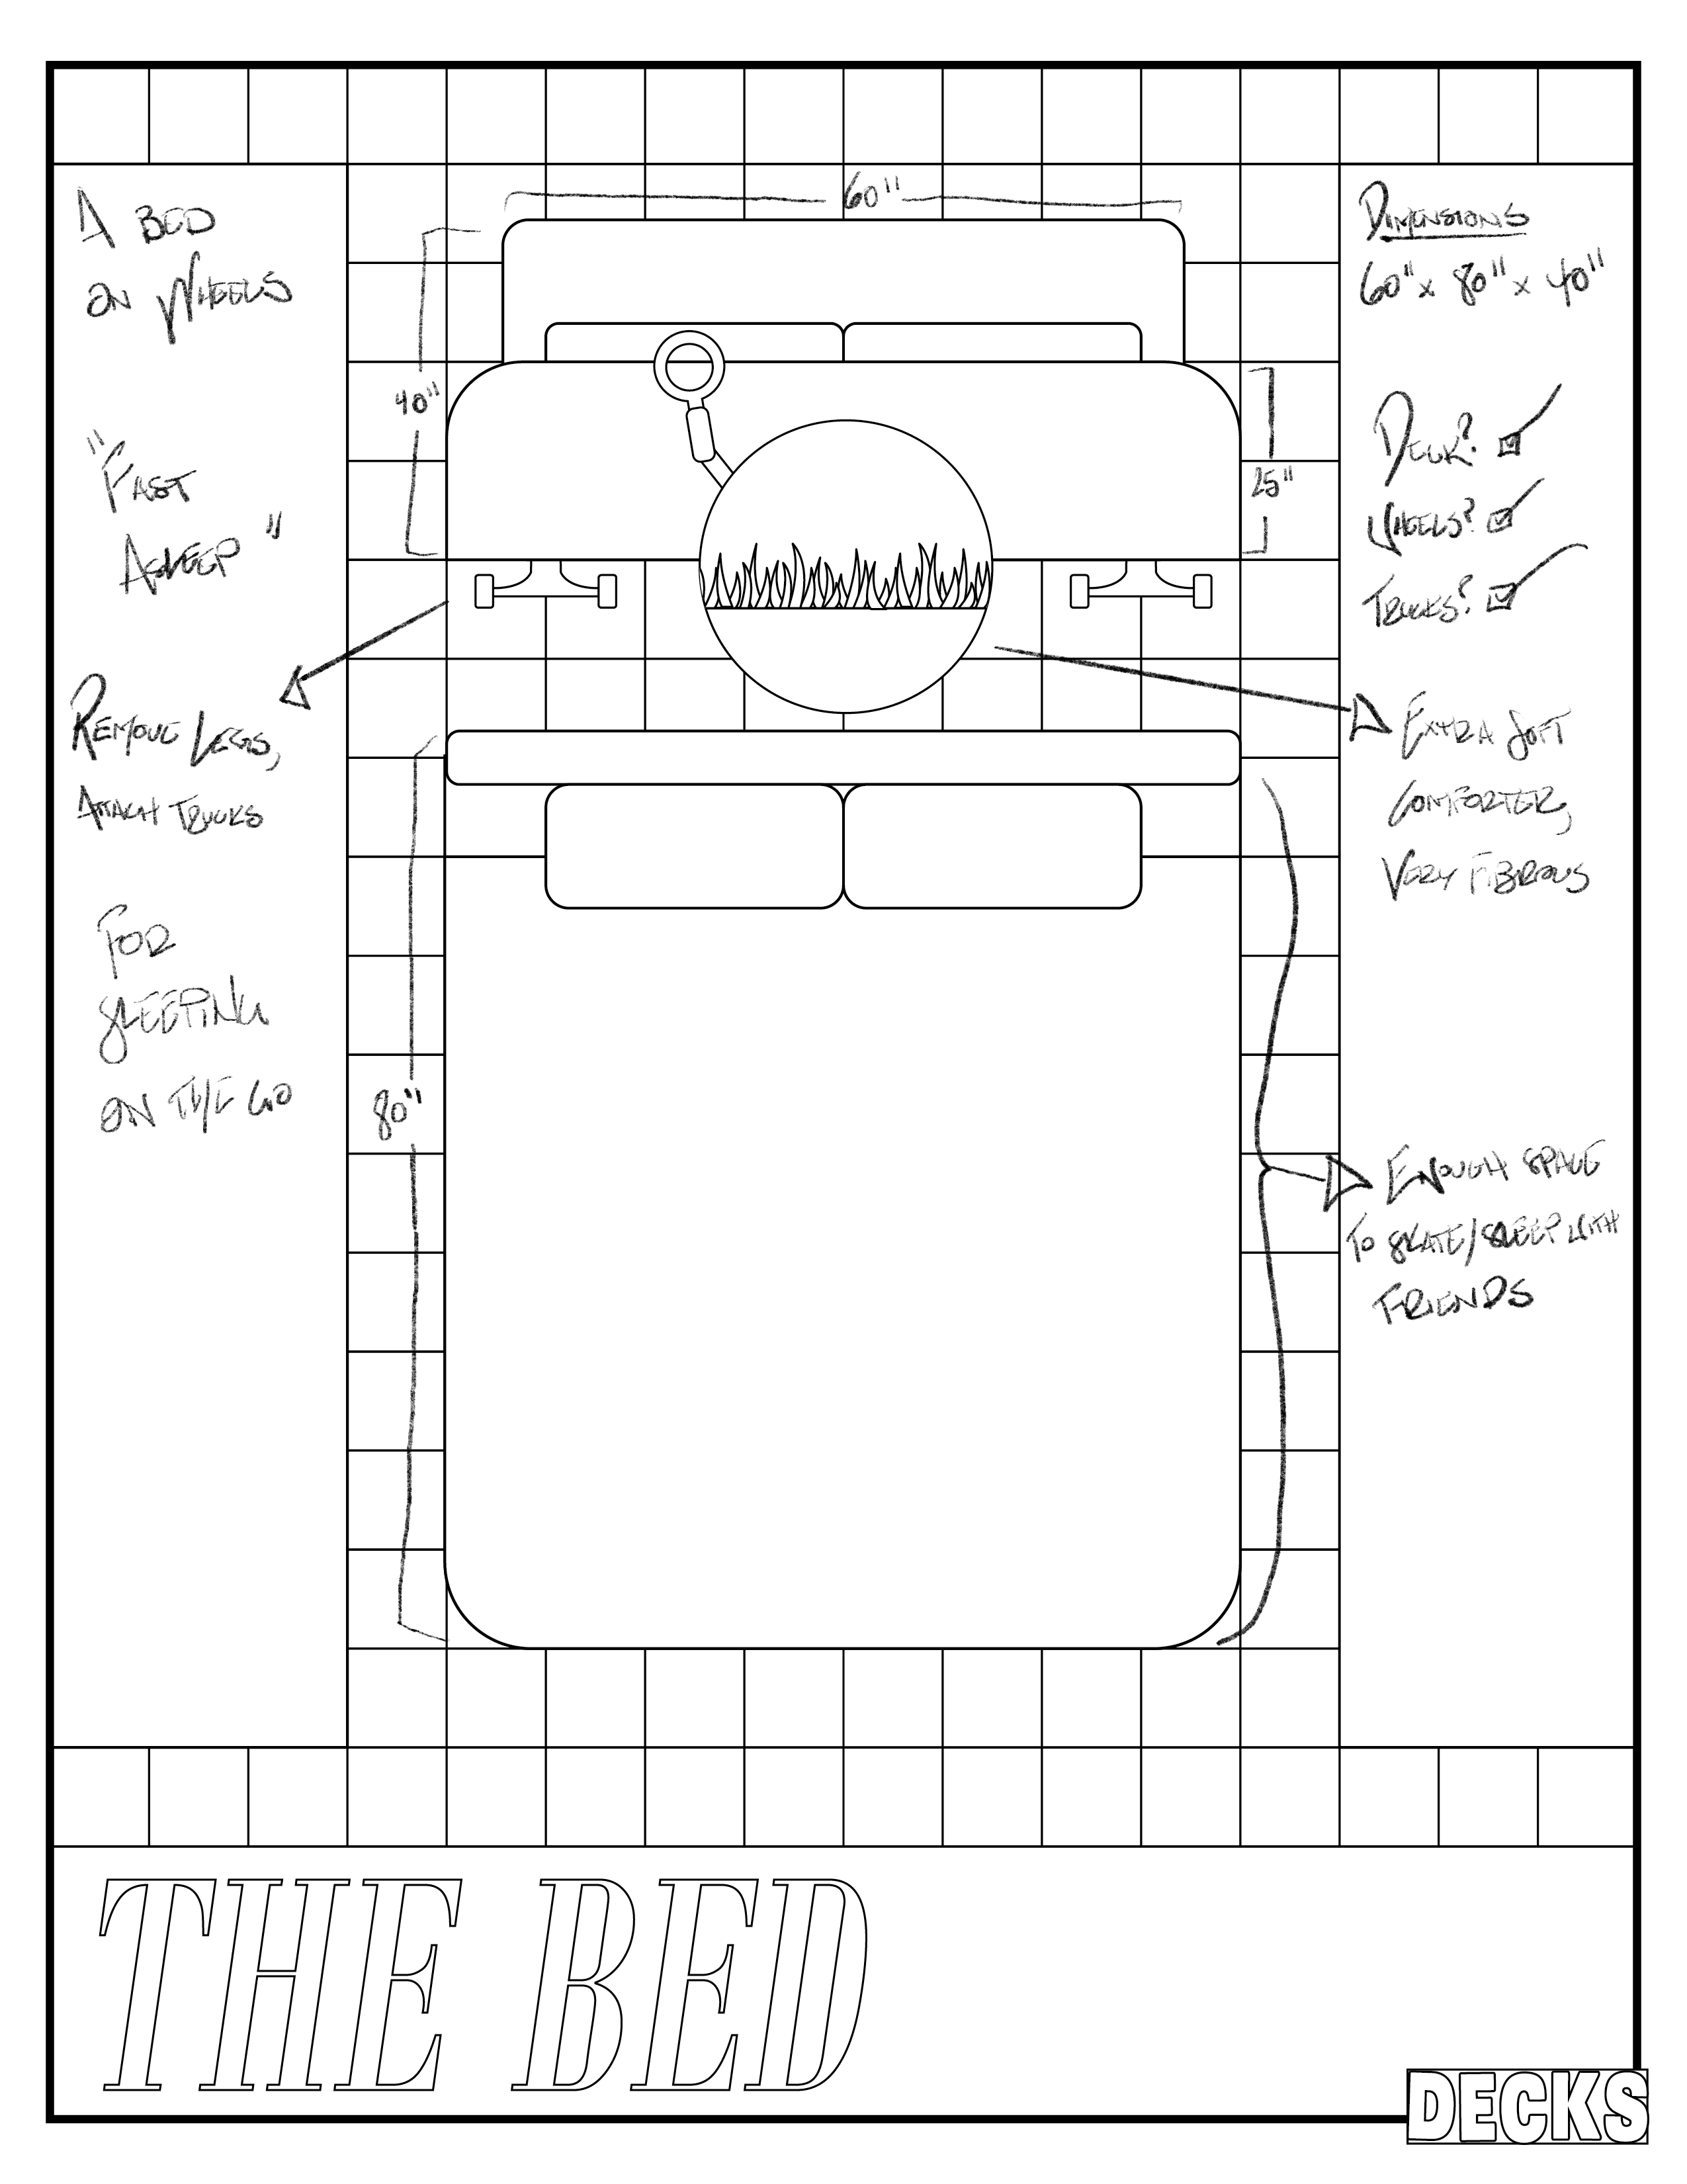 A BED
ON WHEELS
"FAST
ASLEEP"
REMOVE LEGS,
ATTACH TRUCKS
FOR
SLEEPING
ON THE GO
60"
40"
25"
80"
DIMENSIONS
60" x 80" x 40"
DECK?
WHEELS?
TRUCKS?
EXTRA SOFT
COMFORTER,
VERY FIBROUS
ENOUGH SPACE
TO SKATE/SLEEP WITH
FRIENDS
THE BED
DECKS